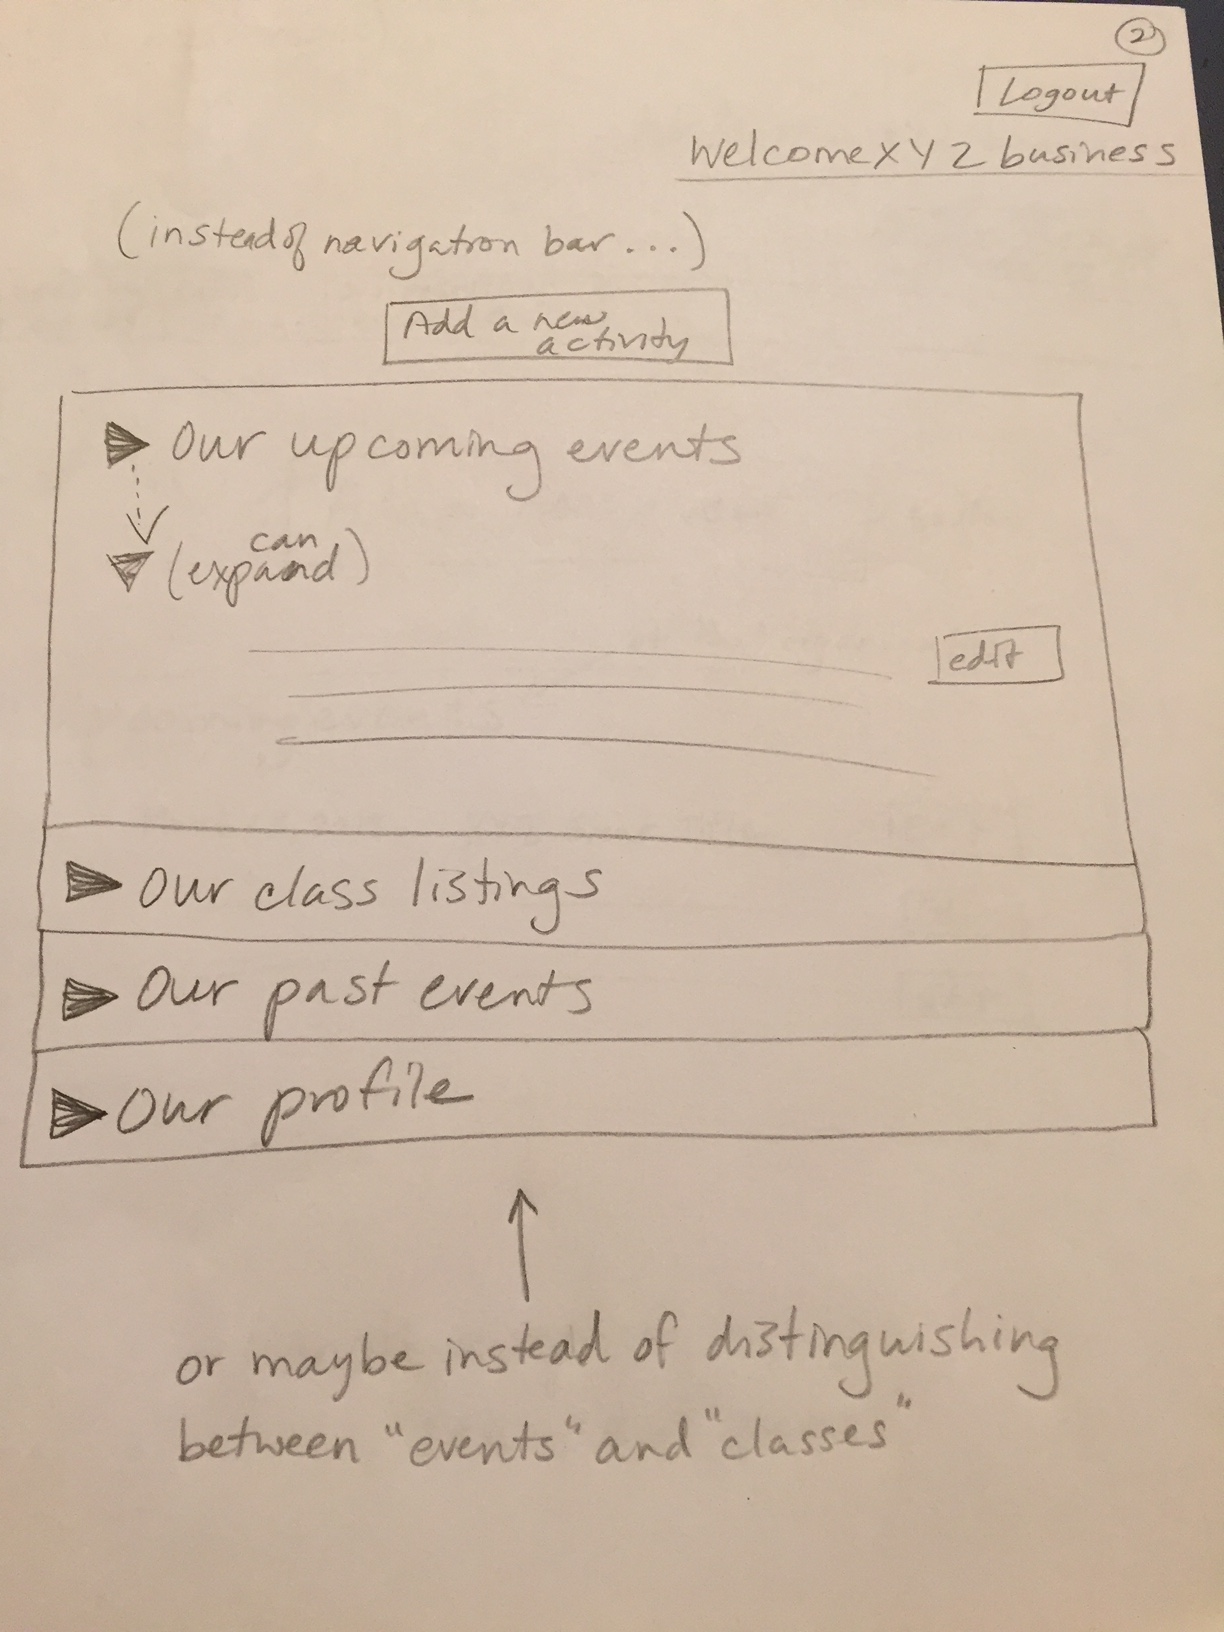 2
Logout
Welcome XYZ business
(instead of navigation bar...)
Add a new
activity
Our upcoming events
can
(expand)
edit
Our class listings
Our past events
Our profile
or maybe instead of distinguishing
between "events" and "classes"